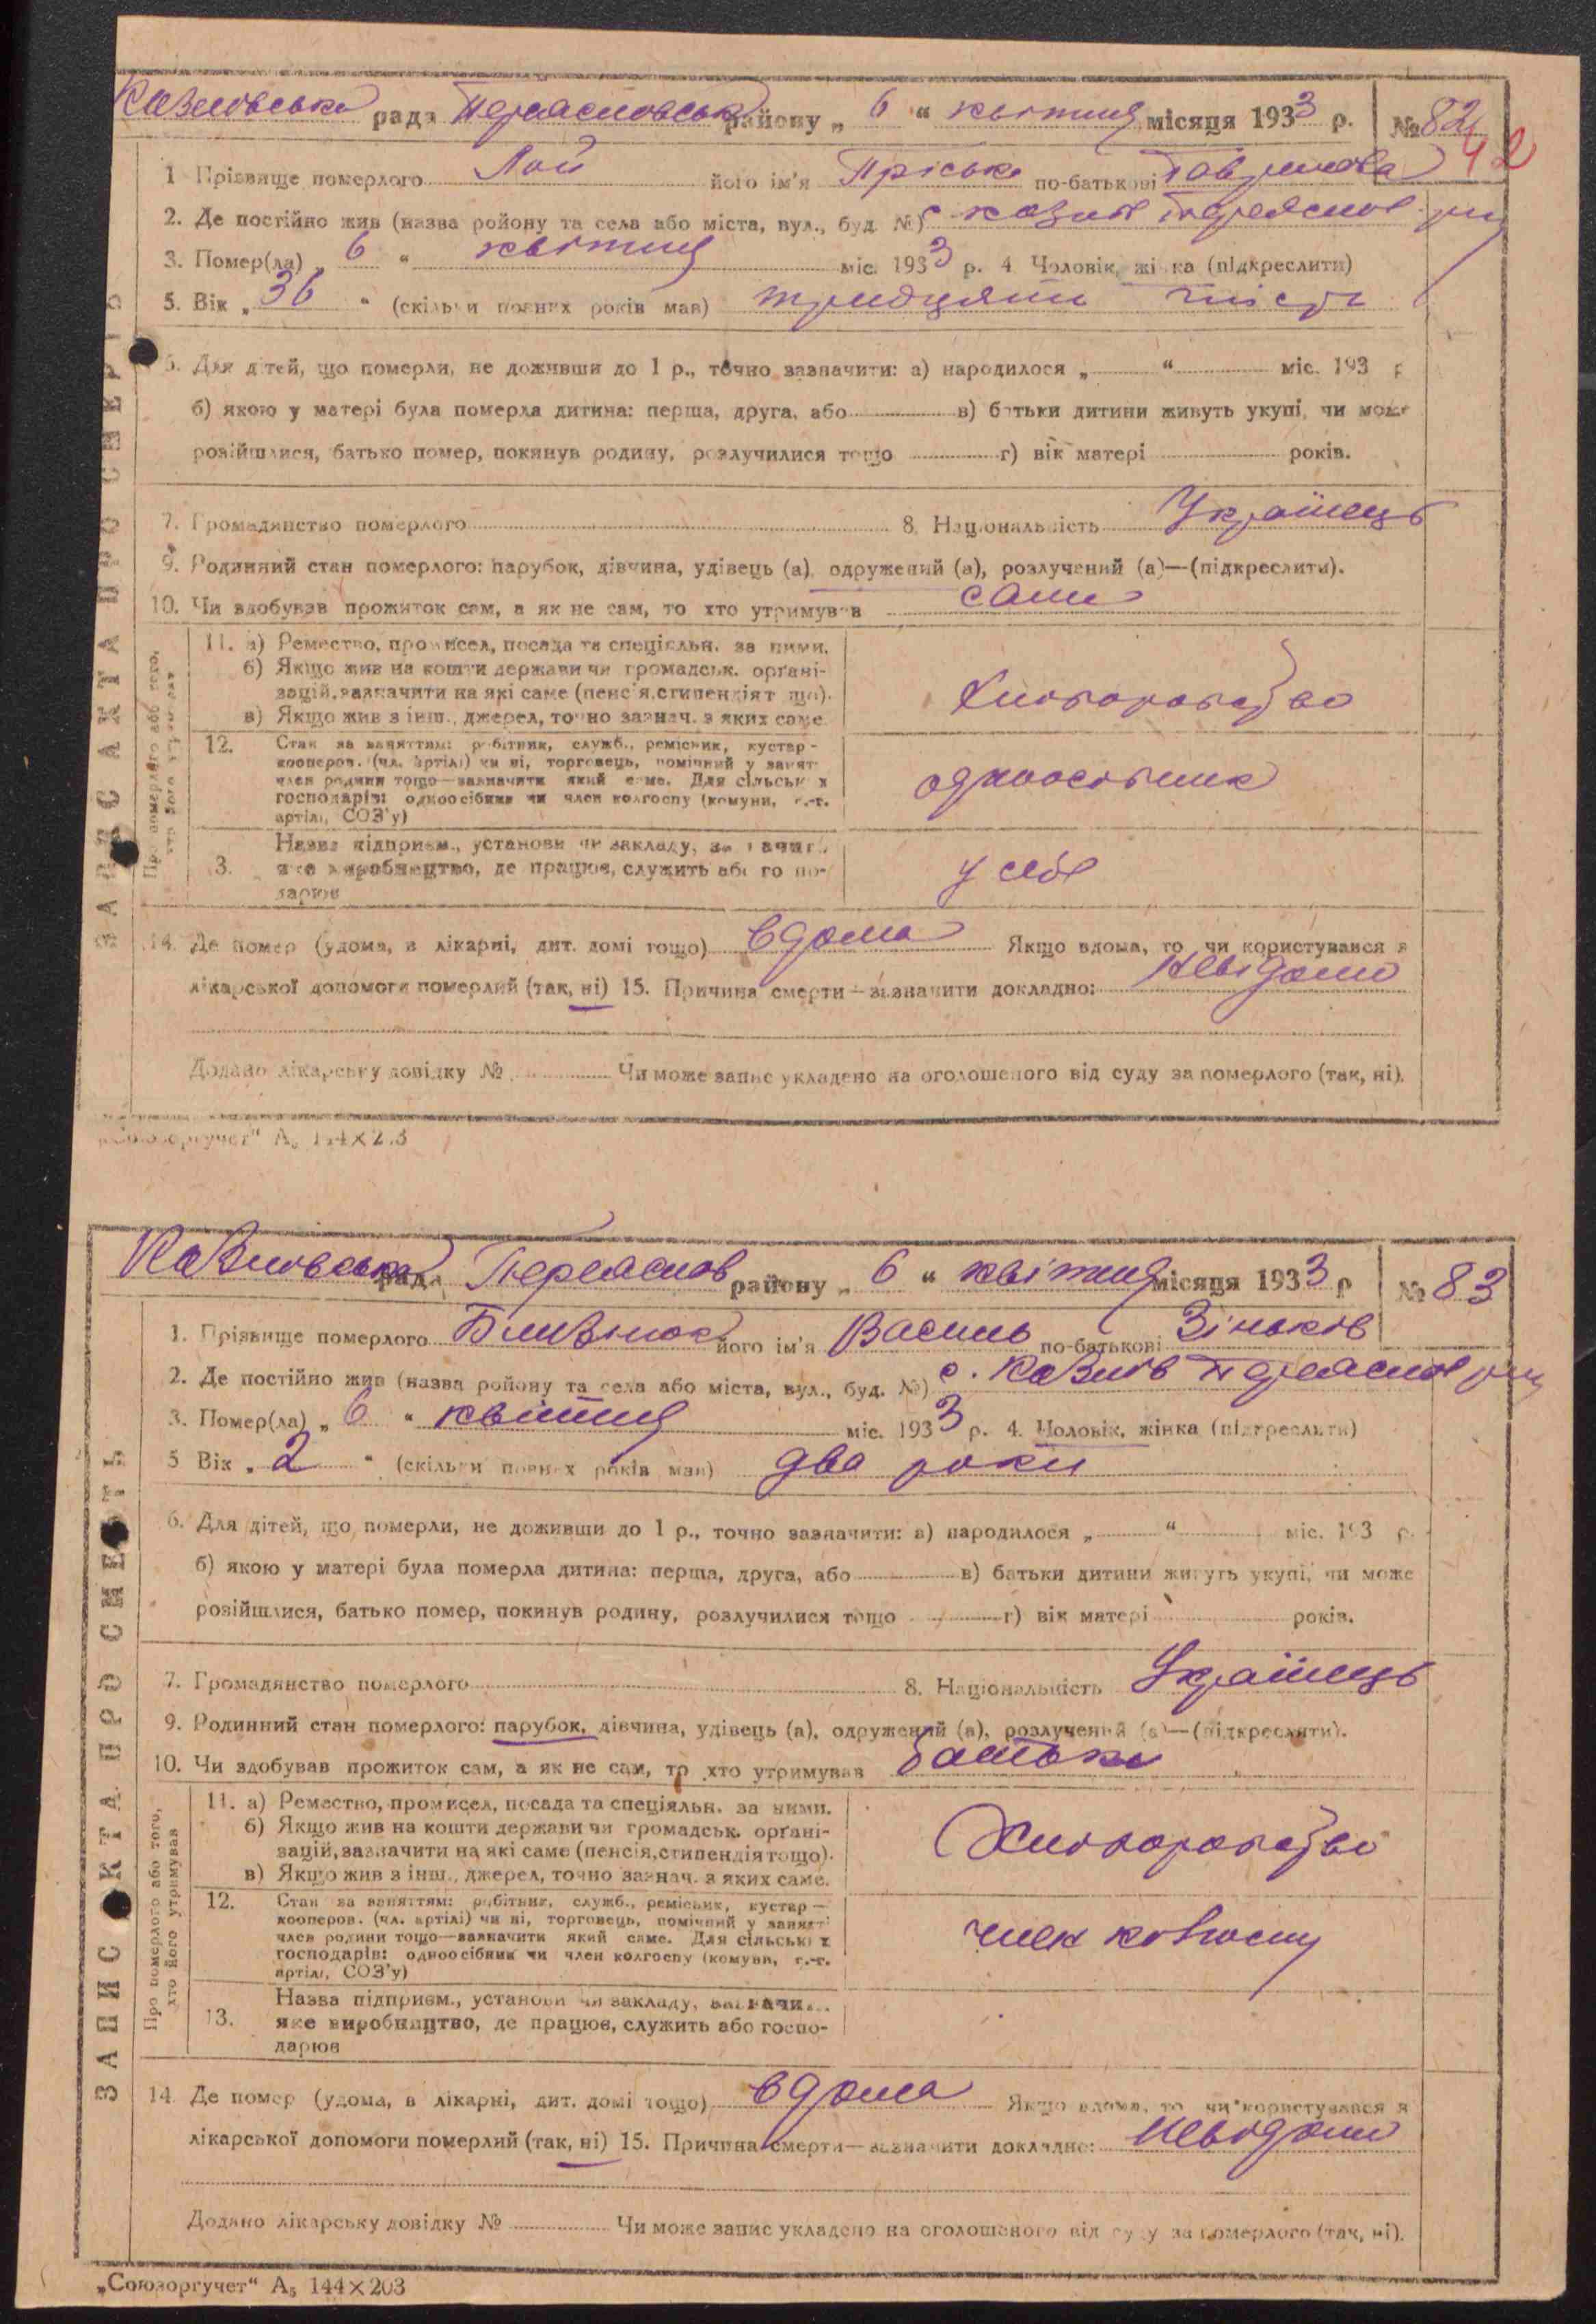 Козловська рада Переяславськ району „ 6 “ квітня місяця 1933 р. № 82
42
1 Прізвище померлого Лой його ім'я Пріська по-батькові Гаврилова
2. Де постійно жив (назва ройону та села або міста, вул., буд. №) с. Козлів Переяслов. рну
3. Помер(ла) „ 6 “ квітня міс. 1933 р. 4 Чоловік, жінка (підкреслити)
5. Вік „ 36 “ (скільки повних років мав) тридцять шість
6. Для дітей, що померли, не доживши до 1 р., точно зазначити: а) народилося „ “ міс. 193 р
б) якою у матері була померла дитина: перша, друга, або в) батьки дитини живуть укупі, чи може
розійшлися, батько помер, покинув родину, розлучилися тощо г) вік матері років.
7. Громадянство померлого 8. Національність Українець
9. Родинний стан померлого: парубок, дівчина, удівець (а), одружений (а), розлучений (а)—(підкреслити).
10. Чи здобував прожиток сам, а як не сам, то хто утримував сама
11. а) Ремество, промисел, посада та спеціяльн. за ними.
б) Якщо жив на кошти держави чи громадськ. органі-
зацій, зазначити на які саме (пенсія, стипендіят що).
в) Якщо жив з інш., джерел, точно зазнач. з яких саме
Хліборобство
12. Стан за заняттям: робітник, служб., ремісник, кустар-
кооперов. (чл. артілі) чи ні, торговець, помічний у занят
член родини тощо—зазначити який саме. Для сільських
господарів: одноосібник чи член колгоспу (комуни, с.-г.
артілі, СОЗ'у)
одноосібник
3. Назва підприєм., установи чи закладу, зазначит.
яке виробництво, де працює, служить або госпо-
дарює
у себе
14. Де помер (удома, в лікарні, дит. домі тощо) вдома Якщо вдома, то чи користувався з
лікарської допомоги померлий (так, ні) 15. Причина смерти—зазначити докладно: невідомо
Додано лікарську довідку № Чи може запис укладено на оголошеного від суду за померлого (так, ні).
ЗАПИС АКТА ПРО СМЕРТЬ
Про померлого або того,
хто його утримував
„Союзоргучет“ А₅ 144×203
Козловська рада Переяслов району „ 6 “ квітня місяця 1933 р № 83
1. Прізвище померлого Близнюк його ім'я Василь по-батькові Зіньків
2. Де постійно жив (назва ройону та села або міста, вул., буд. №) с. Козлів Переяслов рну
3. Помер(ла) „ 6 “ квітня міс. 1933 р. 4. Чоловік, жінка (підкреслити)
5 Вік „ 2 “ (скільки повних років мав) два роки
6. Для дітей, що померли, не доживши до 1 р., точно зазначити: а) народилося „ “ міс. 193 р.
б) якою у матері була померла дитина: перша, друга, або в) батьки дитини живуть укупі, чи може
розійшлися, батько помер, покинув родину, розлучилися тощо г) вік матері років.
7. Громадянство померлого 8. Національність Українець
9. Родинний стан померлого: парубок, дівчина, удівець (а), одружений (а), розлучений (а)—(підкреслити).
10. Чи здобував прожиток сам, а як не сам, то хто утримував батько
11. а) Ремество, промисел, посада та спеціяльн. за ними.
б) Якщо жив на кошти держави чи громадськ. органі-
зацій, зазначити на які саме (пенсія, стипендія тощо).
в) Якщо жив з інш., джерел, точно зазнач. з яких саме.
Хліборобство
12. Стан за заняттям: робітник, служб., ремісник, кустар—
кооперов. (чл. артілі) чи ні, торговець, помічний у занят
член родини тощо—зазначити який саме. Для сільських
господарів: одноосібник чи член колгоспу (комуни, с.-г.
артілі, СОЗ'у)
член колгоспу
13. Назва підприєм., установи чи закладу, зазначи
яке виробництво, де працює, служить або госпо-
дарює
14. Де помер (удома, в лікарні, дит. домі тощо) вдома Якщо вдома, то чи користувався з
лікарської допомоги померлий (так, ні) 15. Причина смерти—зазначити докладно: невідомо
Додано лікарську довідку № Чи може запис укладено на оголошеного від суду за померлого (так, ні).
ЗАПИС АКТА ПРО СМЕРТЬ
Про померлого або того,
хто його утримував
„Союзоргучет“ А₅ 144×203